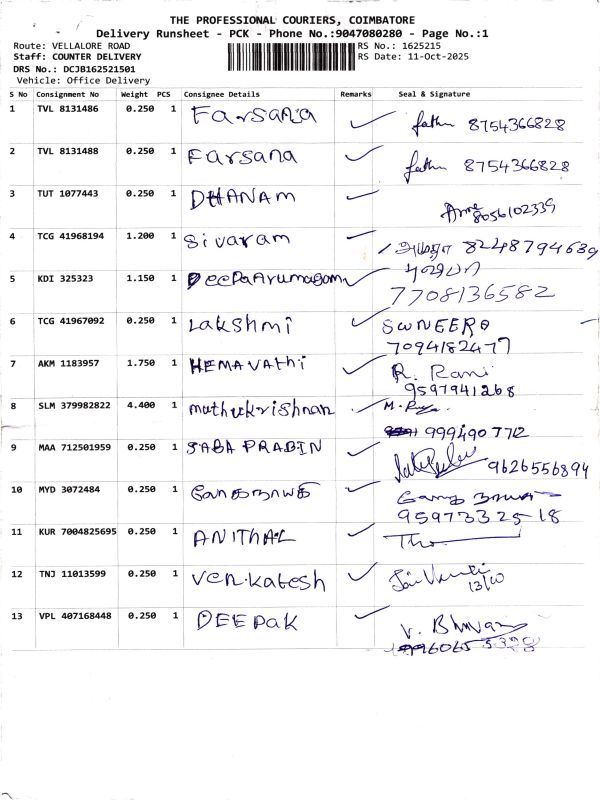 THE PROFESSIONAL COURIERS, COIMBATORE
Delivery Runsheet - PCK - Phone No.:9047080280 - Page No.:1
Route: VELLALORE ROAD RS No.: 1625215
Staff: COUNTER DELIVERY RS Date: 11-Oct-2025
DRS No.: DCJB162521501
Vehicle: Office Delivery
S No Consignment No Weight PCS Consignee Details Remarks Seal & Signature
1 TVL 8131486 0.250 1 Farsana ✓ fathu 8754366828
2 TVL 8131488 0.250 1 Farsana ✓ fathu 8754366828
3 TUT 1077443 0.250 1 DHANAM ✓
8056102339
4 TCG 41968194 1.200 1 Sivaram ✓ 8248794639
5 KDI 325323 1.150 1 Deepa Arumugam ✓
7708136582
6 TCG 41967092 0.250 1 Lakshmi ✓ SUNEERA
7094182477
7 AKM 1183957 1.750 1 HEMAVAthi ✓ R. Rani
9597941268
8 SLM 379982822 4.400 1 muthukrishnan ✓
999490 7712
9 MAA 712501959 0.250 1 SABA PRABIN ✓ 9626556894
10 MYD 3072484 0.250 1 லோகநாயகி ✓
95973325 18
11 KUR 7004825695 0.250 1 ANITHA.L ✓
12 TNJ 11013599 0.250 1 Venkatesh ✓
13/10
13 VPL 407168448 0.250 1 DEEPAK ✓ V. Bhuvan